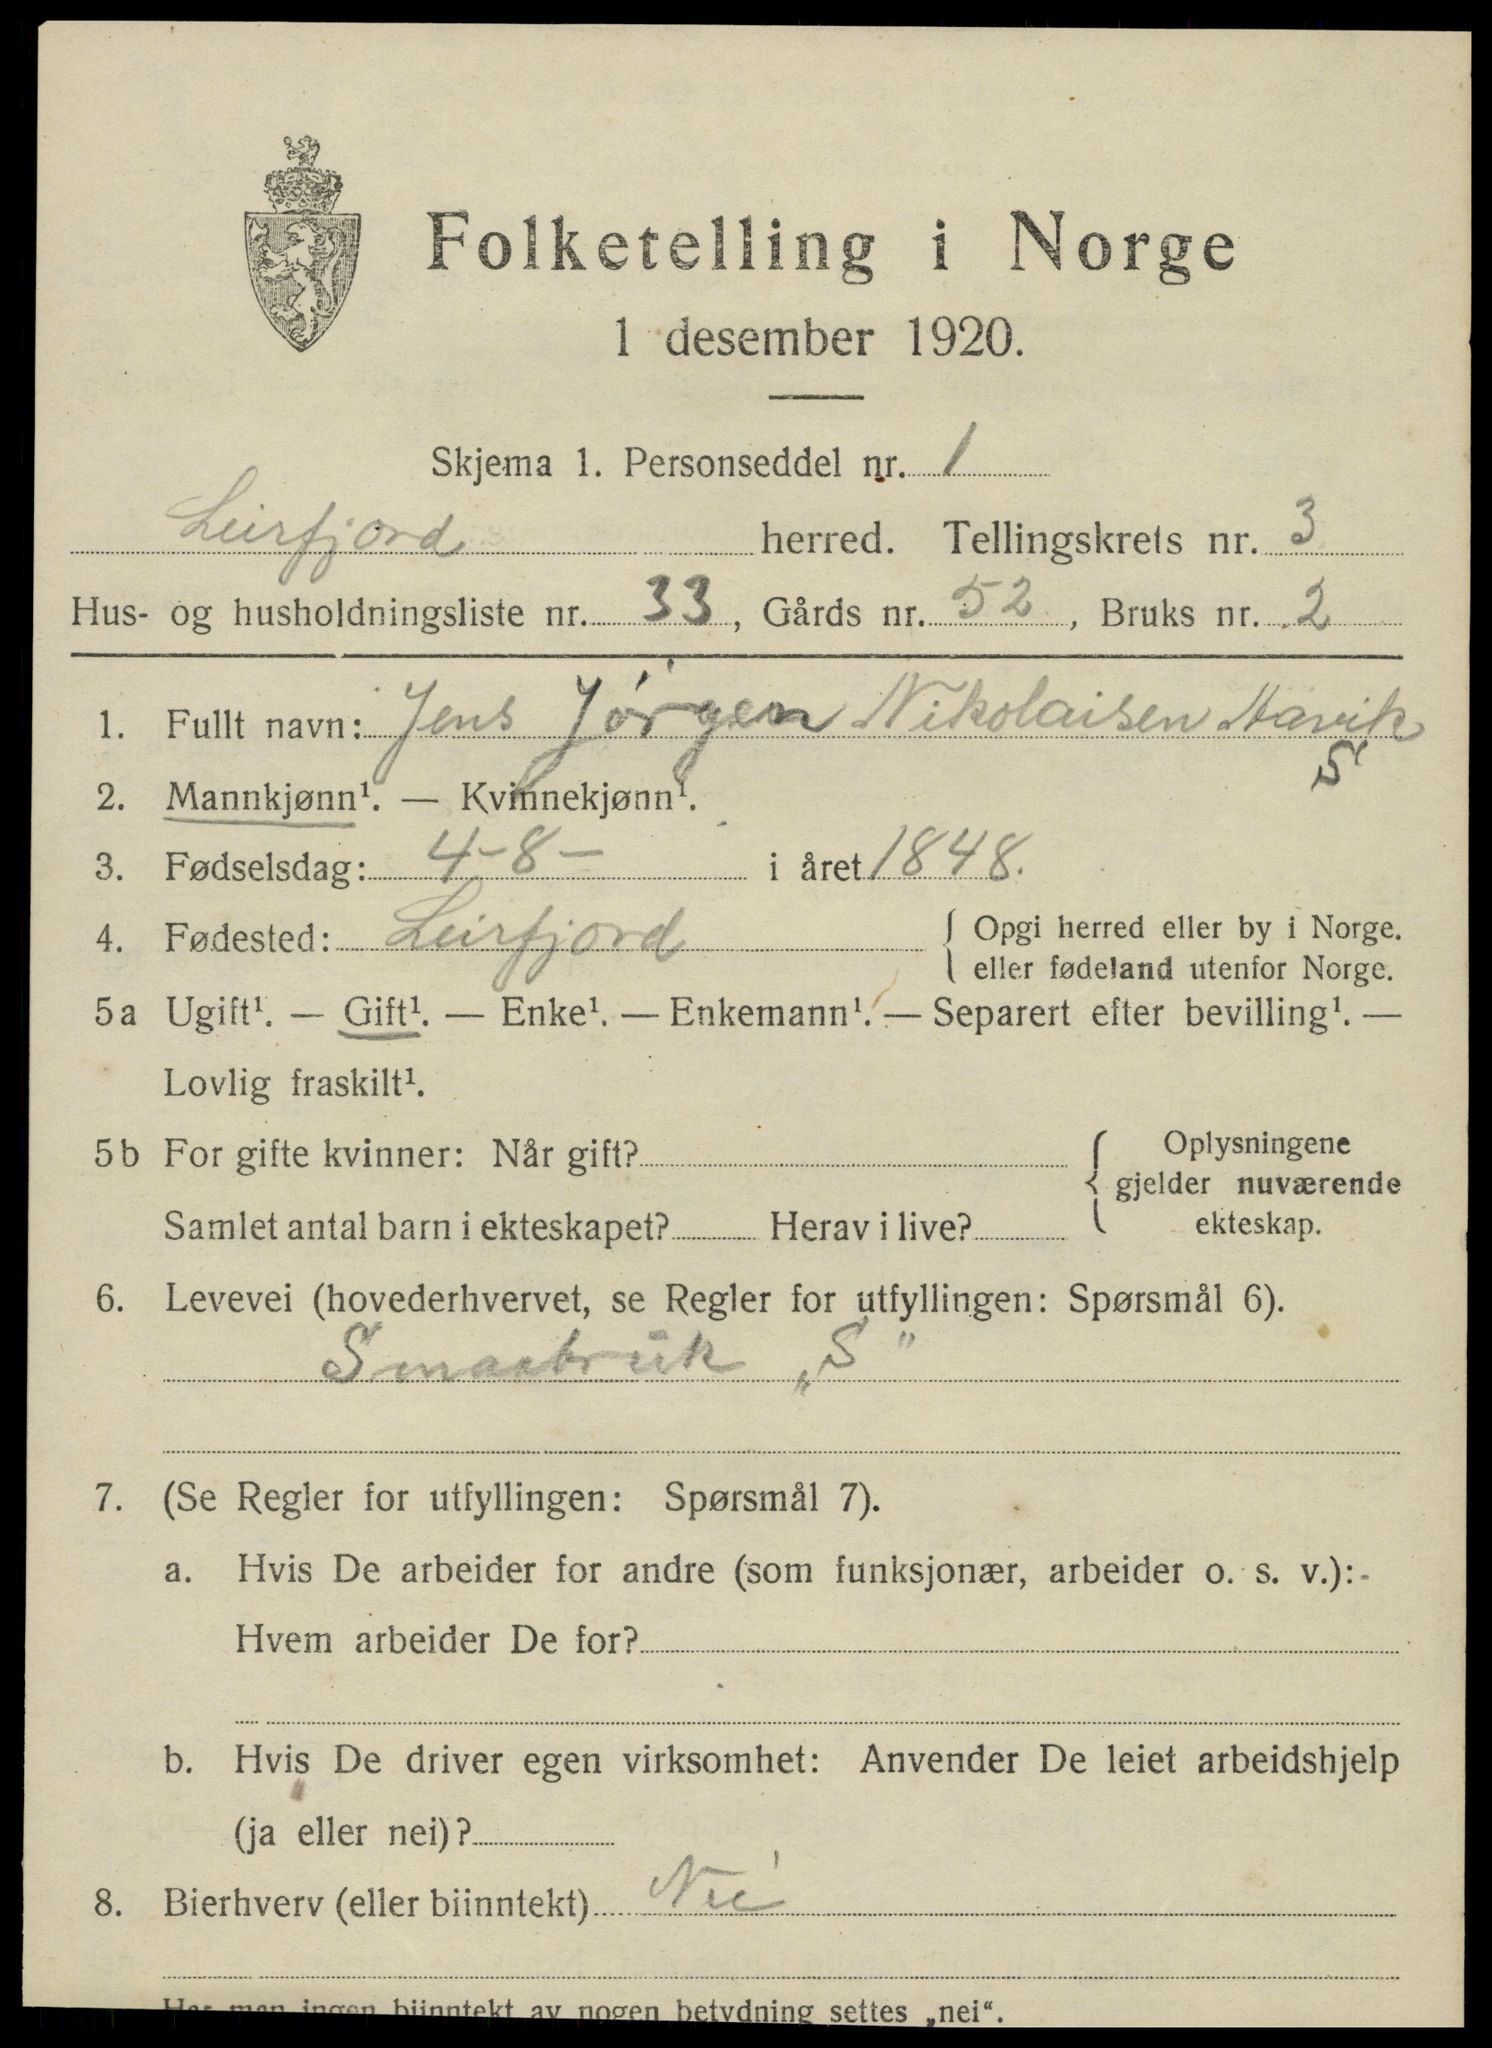 Folketelling i Norge
1 desember 1920.
Skjema 1. Personseddel nr. 1
Leirfjord herred. Tellingskrets nr. 3
Hus- og husholdningsliste nr. 33, Gårds nr. 52, Bruks nr. 2
1. Fullt navn: Jens Jørgen Nikolaisen Havik
S
2. Mannkjønn¹. — Kvinnekjønn¹.
3. Fødselsdag: 4-8- i året 1848.
4. Fødested: Leirfjord { Opgi herred eller by i Norge.
eller fødeland utenfor Norge.
5a Ugift¹. — Gift¹. — Enke¹. — Enkemann¹. — Separert efter bevilling¹. —
Lovlig fraskilt¹.
5b For gifte kvinner: Når gift? { Oplysningene
gjelder nuværende
ekteskap.
Samlet antal barn i ekteskapet? Herav i live?
6. Levevei (hovederhvervet, se Regler for utfyllingen: Spørsmål 6).
Smaabruk „S"
7. (Se Regler for utfyllingen: Spørsmål 7).
a. Hvis De arbeider for andre (som funksjonær, arbeider o. s. v.):
Hvem arbeider De for?
b. Hvis De driver egen virksomhet: Anvender De leiet arbeidshjelp
(ja eller nei)?
8. Bierhverv (eller biinntekt) Nei
Har man ingen biinntekt av nogen betydning settes „nei“.